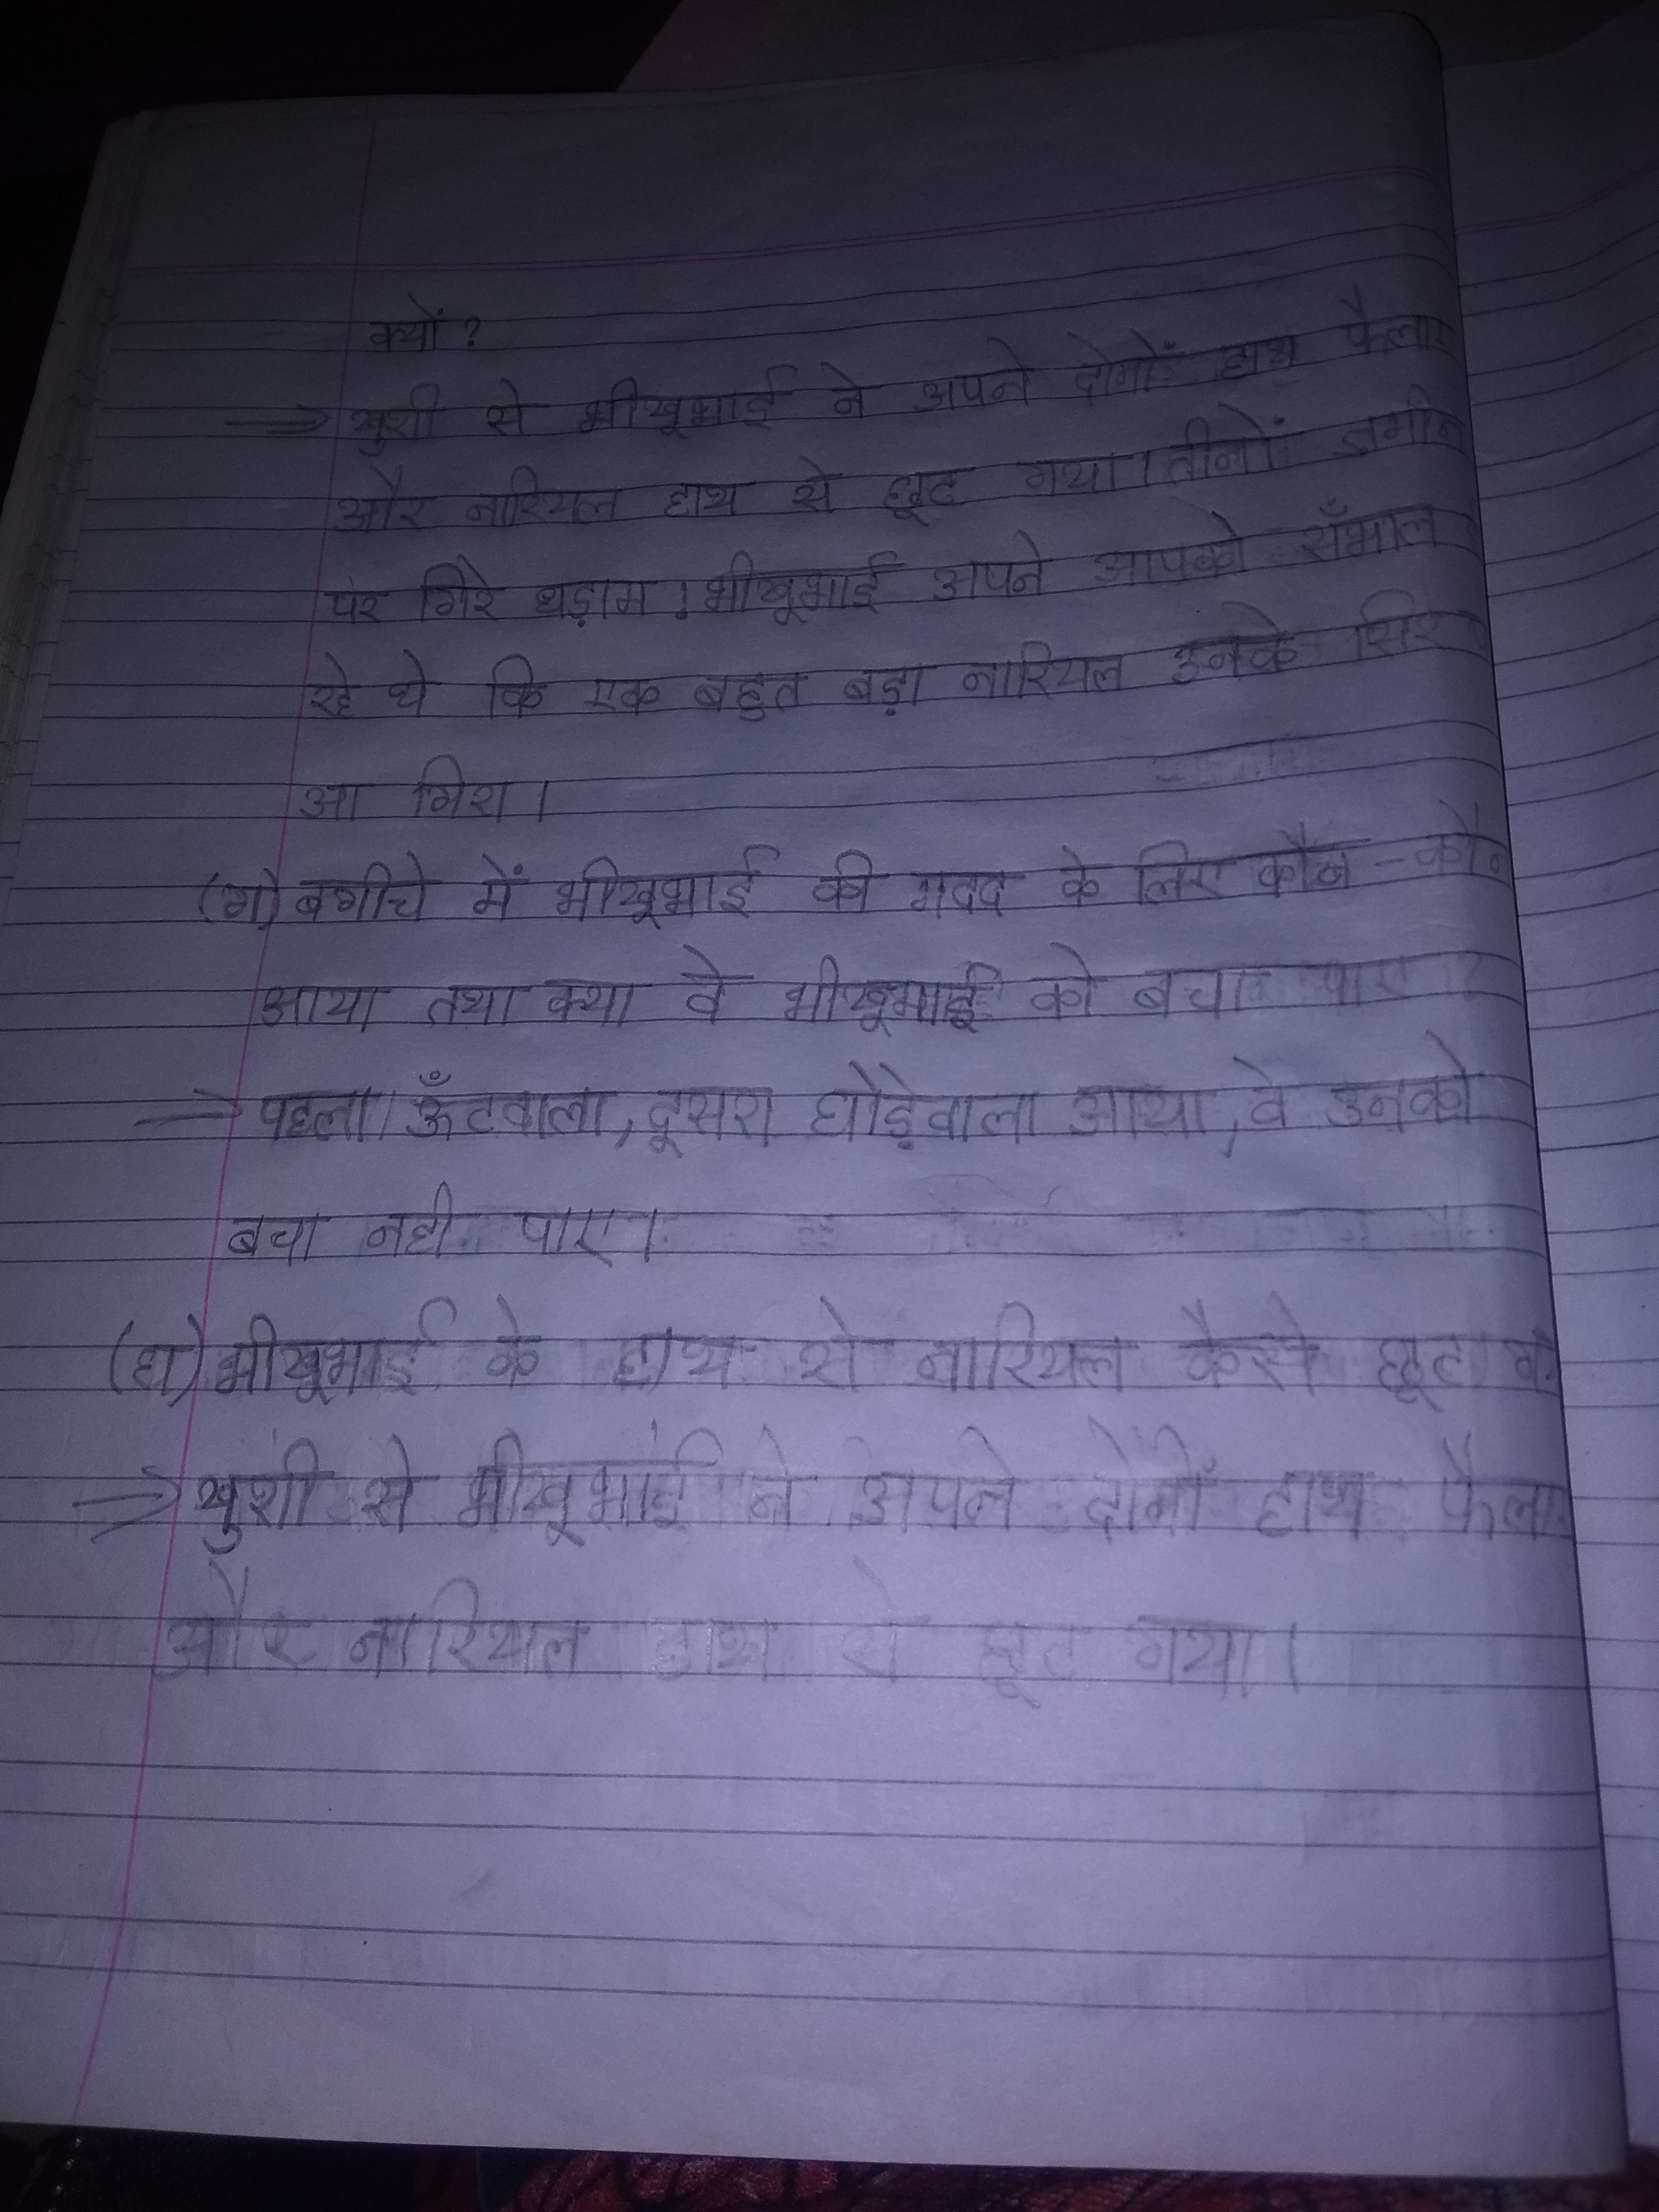 क्यों ?
⇒ खुशी से भीखूभाई ने अपने दोनों हाथ फैलाए
और नारियल हाथ से छूट गया। तीनों जमीन
पर गिरे धड़ाम! भीखूभाई अपने आपको सँभाल
रहे थे कि एक बहुत बड़ा नारियल उनके सिर
आ गिरा।
(ग) बगीचे में भीखूभाई की मदद के लिए कौन - कौन
आया तथा क्या वे भीखूभाई को बचा पाए
⇒ पहला ऊँटवाला, दूसरा घोड़ेवाला आया, वे उनको
बचा नही पाए।
(घ) भीखूभाई के हाथ से नारियल कैसे छूट
⇒ खुशी से भीखूभाई ने अपने दोनों हाथ फैला
और नारियल हाथ से छूट गया।